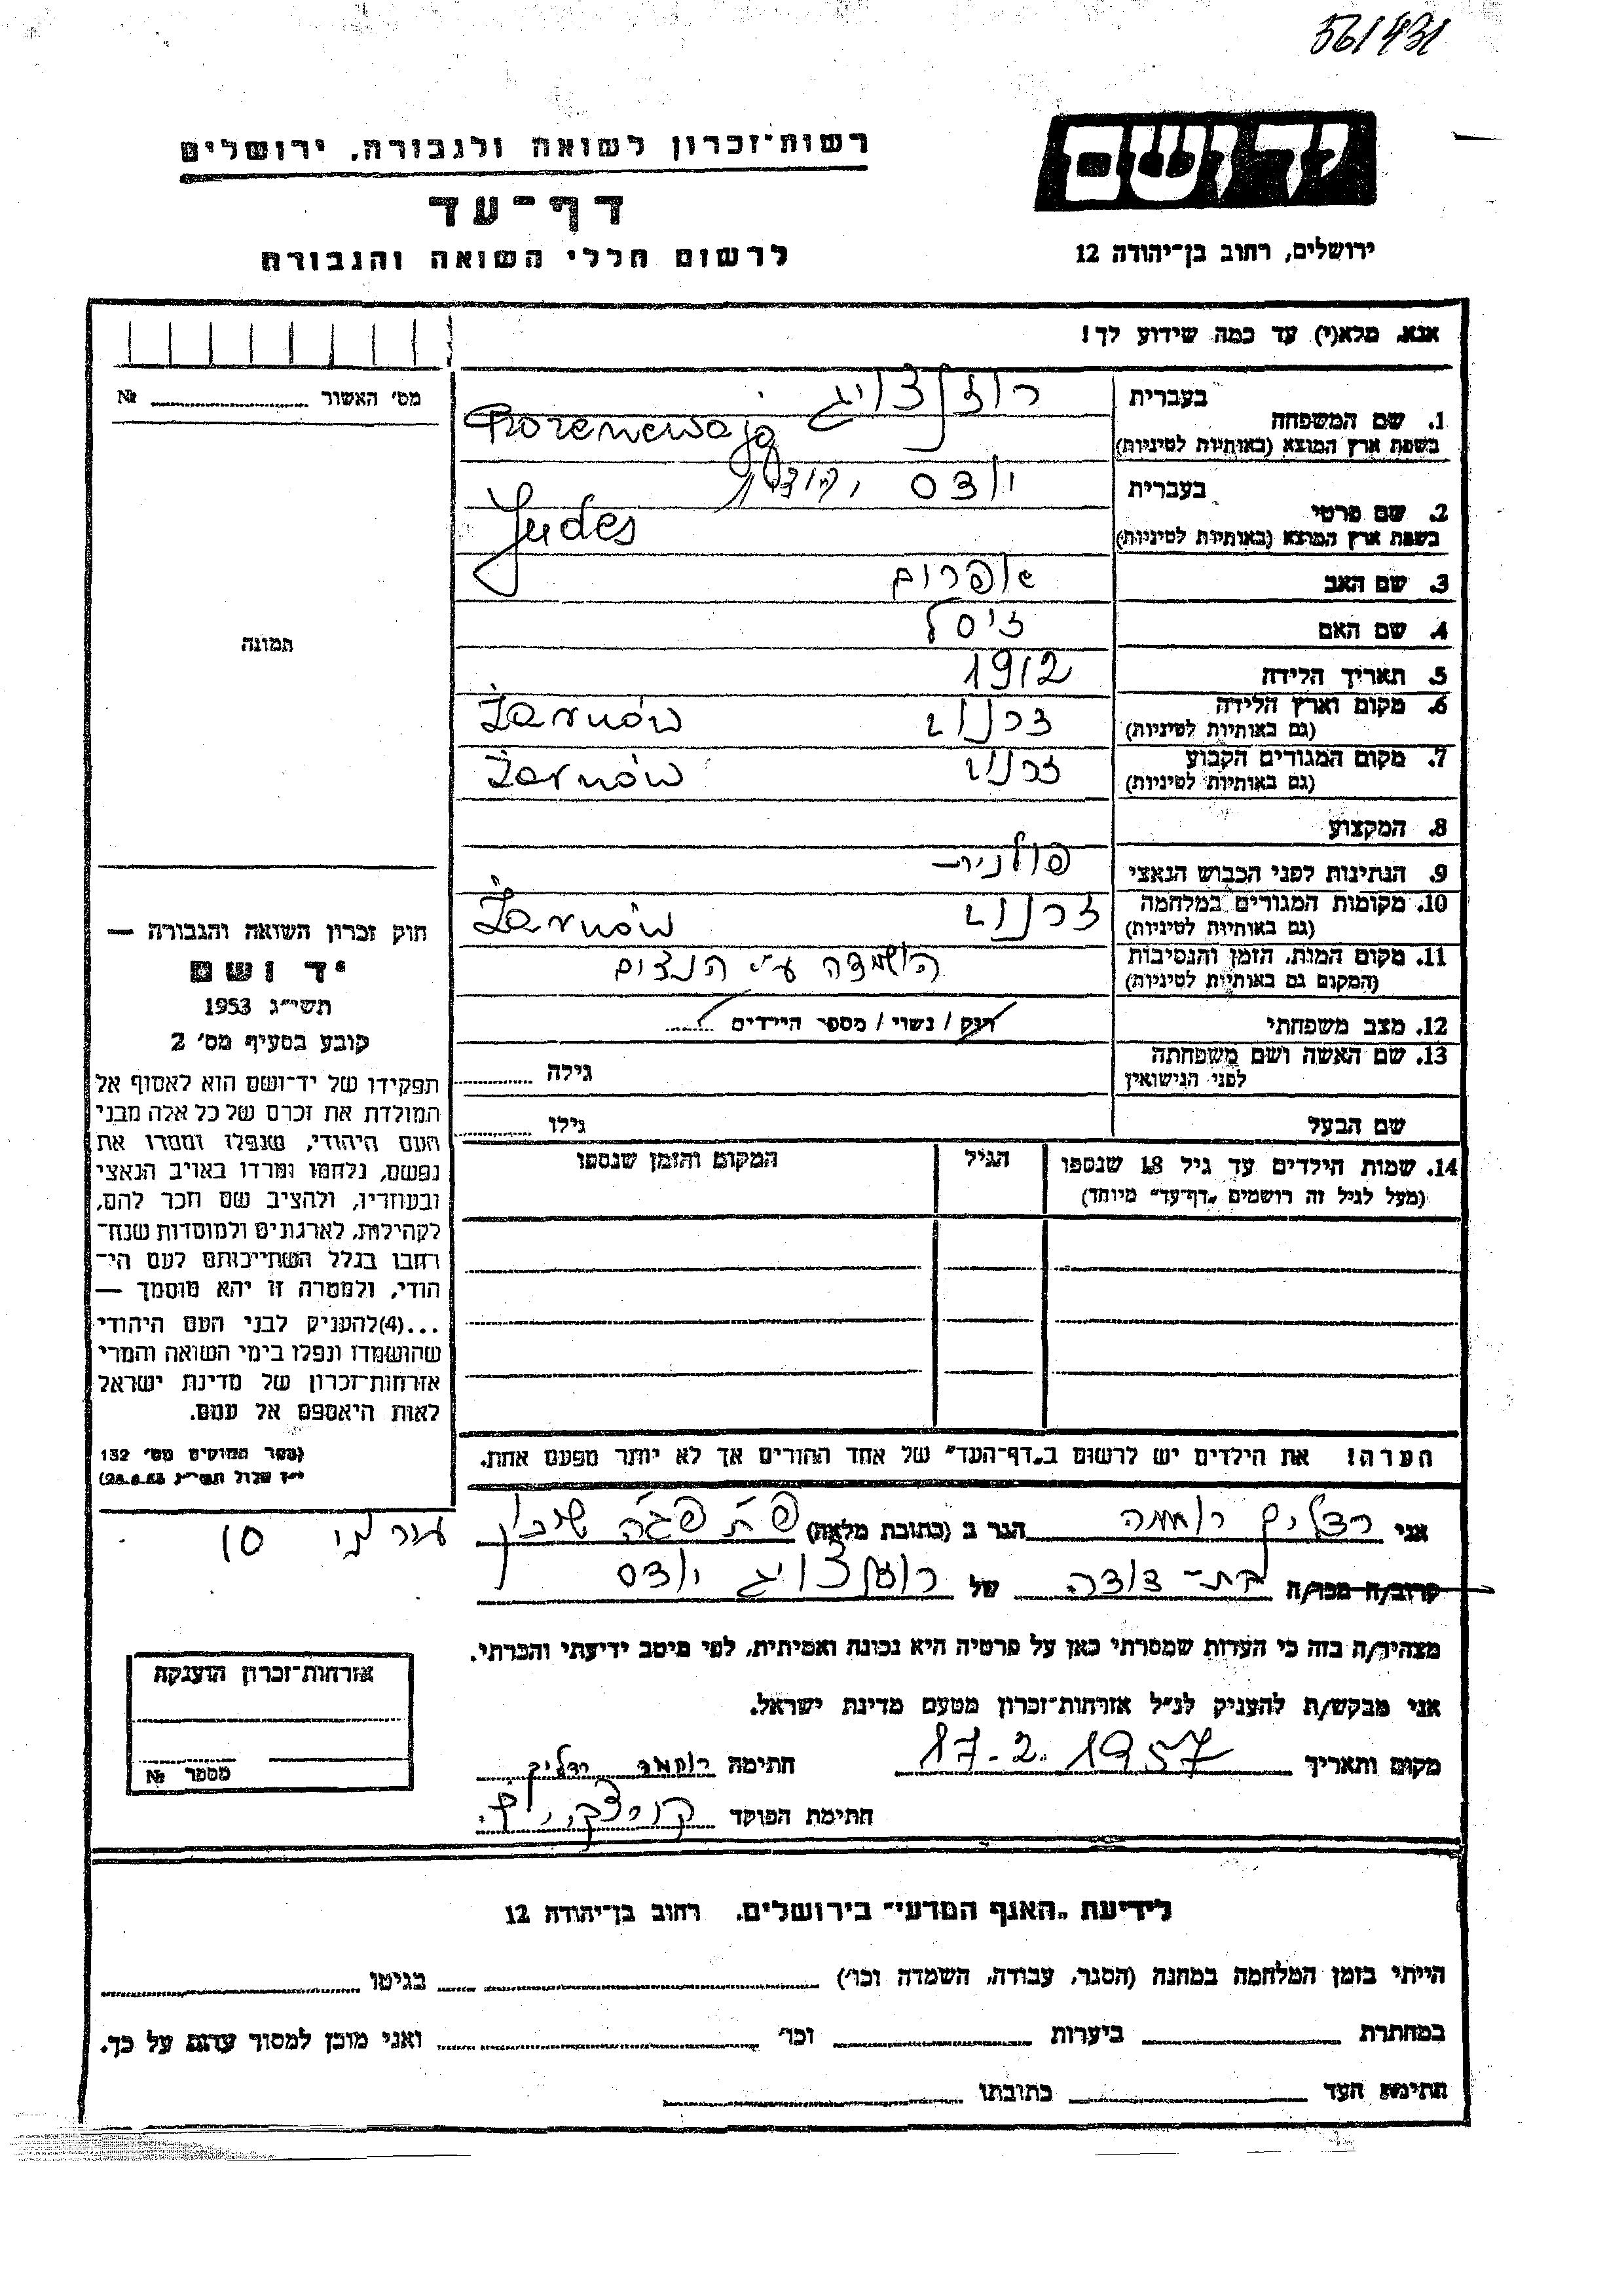 561431
יד ושם
רשות־זכרון לשואה ולגבורה, ירושלים
דף־עד
לרשום חללי השואה והגבורה
ירושלים, רחוב בן־יהודה 12
אנא, מלא(י) עד כמה שידוע לך!
מס׳ האשור № 
1. שם המשפחה בעברית
בשפת ארץ המוצא (באותיות לטיניות)
רוזנצויג
2. שם פרטי בעברית יודס
בשפת ארץ המוצא (באותיות לטיניות) Judes
3. שם האב אפרום
4. שם האם זיסל
5. תאריך הלידה 1912
6. מקום וארץ הלידה זרנוב Żarnów
(גם באותיות לטיניות)
7. מקום המגורים הקבוע זרנוב Żarnów
(גם באותיות לטיניות)
8. המקצוע
9. הנתינות לפני הכבוש הנאצי
10. מקומות המגורים במלחמה זרנוב Żarnów
(גם באותיות לטיניות)
11. מקום המות, הזמן והנסיבות הושמדה ע״י הנצים
(המקום גם באותיות לטיניות)
12. מצב משפחתי רוק / נשוי / מספר הילדים
13. שם האשה ושם משפחתה גילה
לפני הנישואין
שם הבעל גילו
14. שמות הילדים עד גיל 18 שנספו הגיל המקום והזמן שנספו
(מעל לגיל זה רושמים „דף־עד״ מיוחד)
הערה! את הילדים יש לרשום ב„דף־העד״ של אחד ההורים אך לא יותר מפעם אחת.
תמונה
חוק זכרון השואה והגבורה —
יד ושם
תשי״ג 1953
קובע בסעיף מס׳ 2
תפקידו של יד־ושם הוא לאסוף אל
המולדת את זכרם של כל אלה מבני
העם היהודי, שנפלו ומסרו את
נפשם, נלחמו ומרדו באויב הנאצי
ובעוזריו, ולהציב שם וזכר להם,
לקהילות, לארגונים ולמוסדות שנח־
רבו בגלל השתייכותם לעם הי־
הודי, ולמטרה זו יהא מוסמך —
...(4)להעניק לבני העם היהודי
שהושמדו ונפלו בימי השואה והמרי
אזרחות־זכרון של מדינת ישראל
לאות היאספם אל עמם.
(ספר החוקים מס׳ 132
אני הגר ב (כתובת מלאה) פ״ת פגה שיכון 10
קרוב/ה מכר/ה בת-דודה של רוזנצויג יודס
מצהיר/ה בזה כי העדות שמסרתי כאן על פרטיה היא נכונה ואמיתית, לפי מיטב ידיעתי והכרתי.
אני מבקש/ת להעניק לנ״ל אזרחות־זכרון מטעם מדינת ישראל.
מקום ותאריך 17.2.1957 חתימה
חתימת הפוקד
אזרחות־זכרון הוענקה
מספר №
לידיעת „האגף המדעי״ בירושלים. רחוב בן־יהודה 12
הייתי בזמן המלחמה במחנה (הסגר, עבודה, השמדה וכו׳) בגיטו
במחתרת ביערות וכו׳ ואני מוכן למסור עדות על כך.
חתימת העד כתובתו